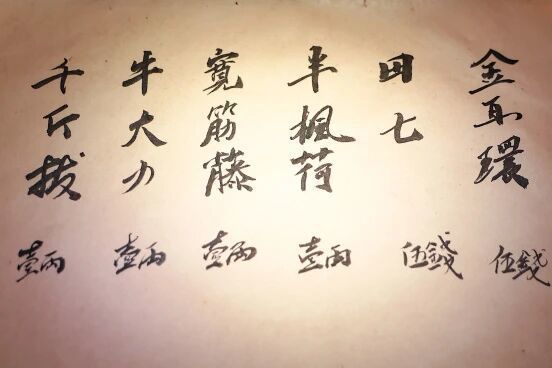 金耳環 伍錢
田七 伍錢
半楓荷 壹兩
寬筋藤 壹兩
牛大力 壹兩
千斤拔 壹兩